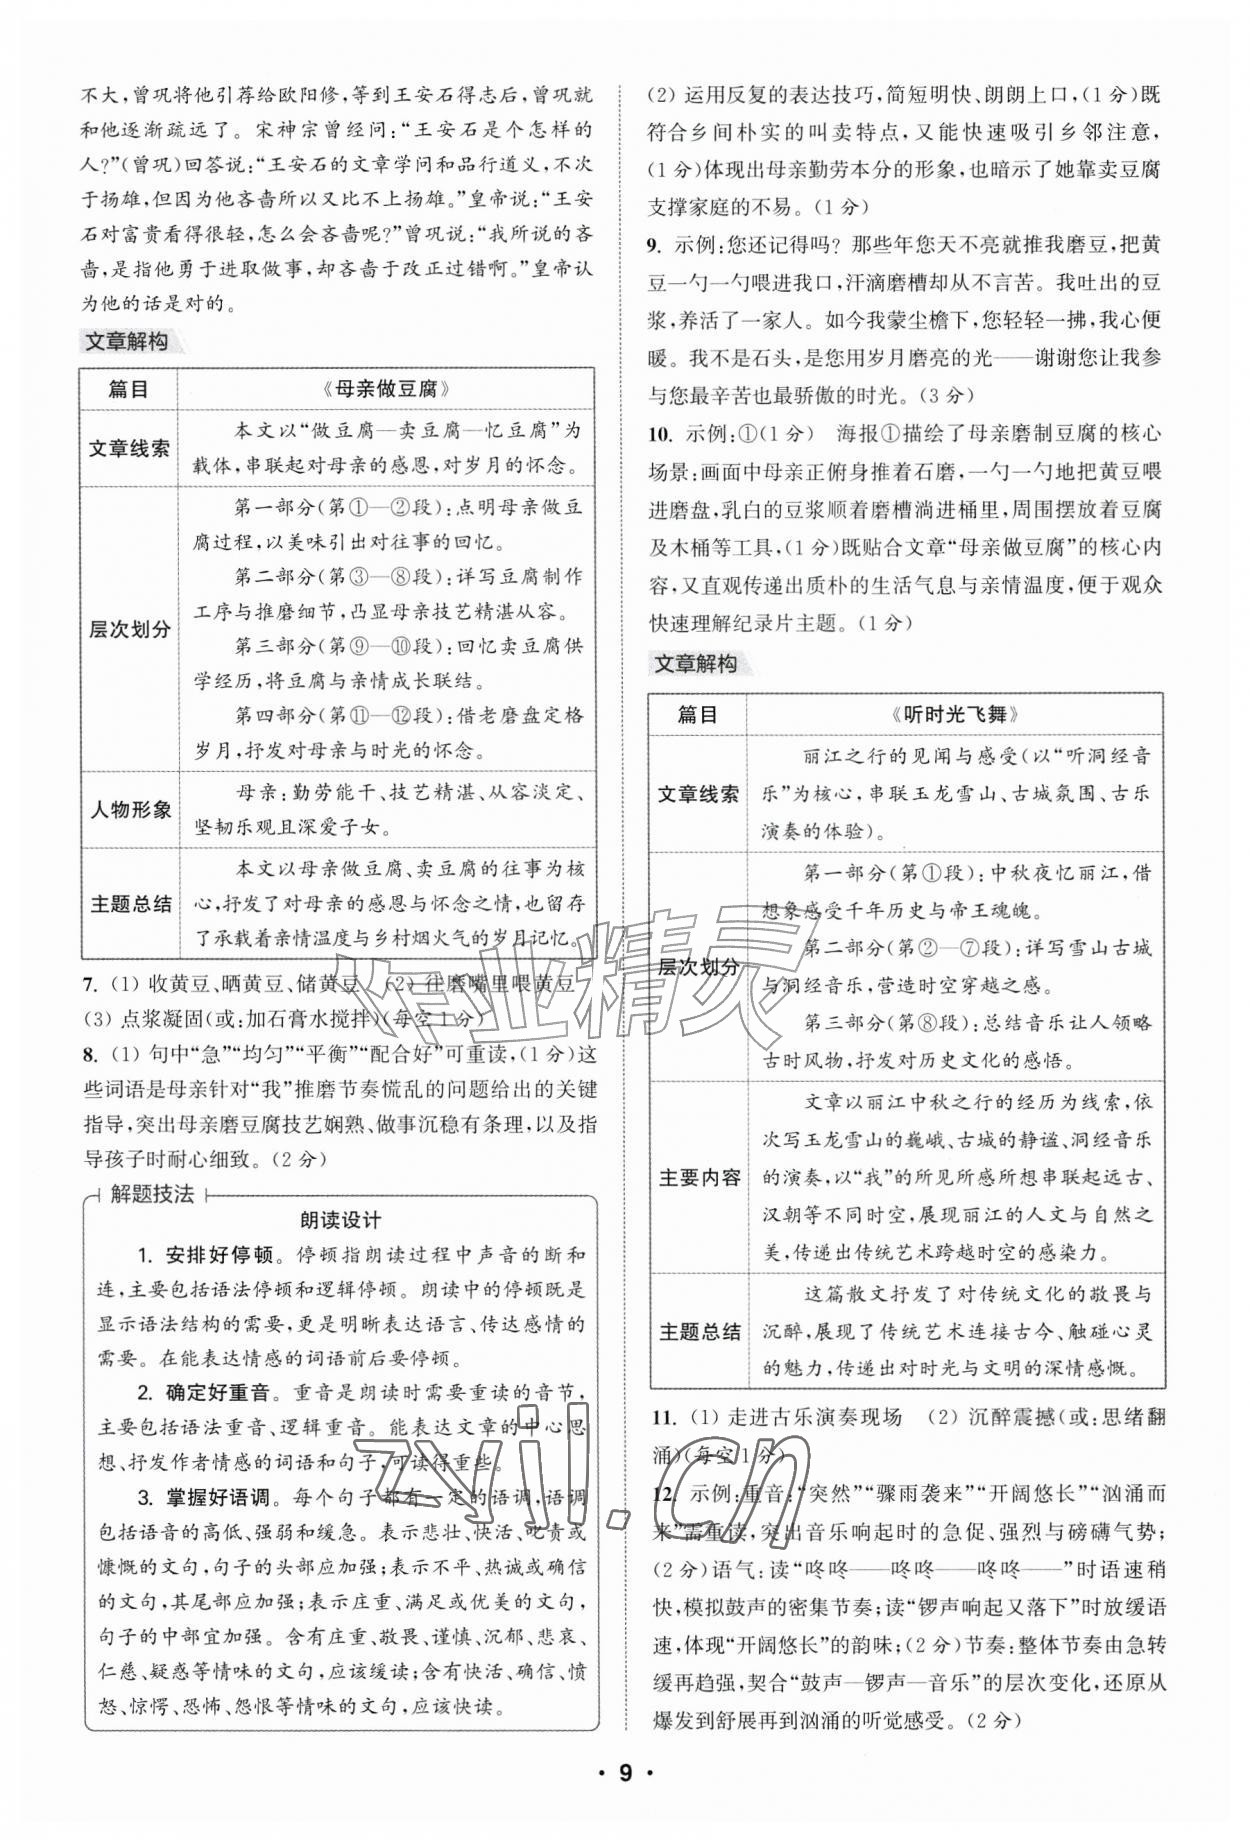 不大，曾巩将他引荐给欧阳修，等到王安石得志后，曾巩就
和他逐渐疏远了。宋神宗曾经问：“王安石是个怎样的
人？”（曾巩）回答说：“王安石的文章学问和品行道义，不次
于扬雄，但是因为他吝啬所以又比不上扬雄。”皇帝说：“王安
石对富贵看得很轻，怎么会吝啬呢？”曾巩说：“我所说的吝
啬，是指他勇于进取做事，却吝啬于改正过错啊。”皇帝认
为他的话是对的。
文章解构
篇目 《母亲做豆腐》
文章线索
本文以“做豆腐—卖豆腐—忆豆腐”为
载体，串联起对母亲的感恩，对岁月的怀念。
层次划分
第一部分（第①—②段）：点明母亲做豆
腐过程，以美味引出对往事的回忆。
第二部分（第③—⑧段）：详写豆腐制作
工序与推磨细节，凸显母亲技艺精湛从容。
第三部分（第⑨—⑩段）：回忆卖豆腐供
学经历，将豆腐与亲情成长联结。
第四部分（第⑪—⑫段）：借老磨盘定格
岁月，抒发对母亲与时光的怀念。
人物形象
母亲：勤劳能干、技艺精湛、从容淡定、
坚韧乐观且深爱子女。
主题总结
本文以母亲做豆腐、卖豆腐的往事为核
心，抒发了对母亲的感恩与怀念之情，也留存
了承载着亲情温度与乡村烟火气的岁月记忆。
7. （1）收黄豆、晒黄豆、储黄豆 （2）往磨嘴里喂黄豆
（3）点浆凝固（或：加石膏水搅拌）（每空1分）
8. （1）句中“急”“均匀”“平衡”“配合好”可重读，（1分）这
些词语是母亲针对“我”推磨节奏慌乱的问题给出的关键
指导，突出母亲磨豆腐技艺娴熟、做事沉稳有条理，以及指
导孩子时耐心细致。（2分）
解题技法
朗读设计
1. 安排好停顿。停顿指朗读过程中声音的断和
连，主要包括语法停顿和逻辑停顿。朗读中的停顿既是
显示语法结构的需要，更是明晰表达语言、传达感情的
需要。在能表达情感的词语前后要停顿。
2. 确定好重音。重音是朗读时需要重读的音节，
主要包括语法重音、逻辑重音。能表达文章的中心思
想、抒发作者情感的词语和句子，可读得重些。
3. 掌握好语调。每个句子都有一定的语调，语调
包括语音的高低、强弱和缓急。表示悲壮、快活、叱责或
慷慨的文句，句子的头部应加强；表示不平、热诚或确信
的文句，其尾部应加强；表示庄重、满足或优美的文句，
句子的中部宜加强。含有庄重、敬畏、谨慎、沉郁、悲哀、
仁慈、疑惑等情味的文句，应该缓读；含有快活、确信、愤
怒、惊愕、恐怖、怨恨等情味的文句，应该快读。
（2）运用反复的表达技巧，简短明快、朗朗上口，（1分）既
符合乡间朴实的叫卖特点，又能快速吸引乡邻注意，
（1分）体现出母亲勤劳本分的形象，也暗示了她靠卖豆腐
支撑家庭的不易。（1分）
9. 示例：您还记得吗？那些年您天不亮就推我磨豆，把黄
豆一勺一勺喂进我口，汗滴磨槽却从不言苦。我吐出的豆
浆，养活了一家人。如今我蒙尘檐下，您轻轻一拂，我心便
暖。我不是石头，是您用岁月磨亮的光——谢谢您让我参
与您最辛苦也最骄傲的时光。（3分）
10. 示例：①（1分） 海报①描绘了母亲磨制豆腐的核心
场景：画面中母亲正俯身推着石磨，一勺一勺地把黄豆喂
进磨盘，乳白的豆浆顺着磨槽淌进桶里，周围摆放着豆腐
及木桶等工具，（1分）既贴合文章“母亲做豆腐”的核心内
容，又直观传递出质朴的生活气息与亲情温度，便于观众
快速理解纪录片主题。（1分）
文章解构
篇目 《听时光飞舞》
文章线索
丽江之行的见闻与感受（以“听洞经音
乐”为核心，串联玉龙雪山、古城氛围、古乐
演奏的体验）。
层次划分
第一部分（第①段）：中秋夜忆丽江，借
想象感受千年历史与帝王魂魄。
第二部分（第②—⑦段）：详写雪山古城
与洞经音乐，营造时空穿越之感。
第三部分（第⑧段）：总结音乐让人领略
古时风物，抒发对历史文化的感悟。
主要内容
文章以丽江中秋之行的经历为线索，依
次写玉龙雪山的巍峨、古城的静谧、洞经音乐
的演奏，以“我”的所见所感所想串联起远古、
汉朝等不同时空，展现丽江的人文与自然之
美，传递出传统艺术跨越时空的感染力。
主题总结
这篇散文抒发了对传统文化的敬畏与
沉醉，展现了传统艺术连接古今、触碰心灵
的魅力，传递出对时光与文明的深情感慨。
11. （1）走进古乐演奏现场 （2）沉醉震撼（或：思绪翻
涌）（每空1分）
12. 示例：重音：“突然”“骤雨袭来”“开阔悠长”“汹涌而
来”需重读，突出音乐响起时的急促、强烈与磅礴气势；
（2分）语气：读“咚咚——咚咚——咚咚——”时语速稍
快，模拟鼓声的密集节奏；读“锣声响起又落下”时放缓语
速，体现“开阔悠长”的韵味；（2分）节奏：整体节奏由急转
缓再趋强，契合“鼓声—锣声—音乐”的层次变化，还原从
爆发到舒展再到汹涌的听觉感受。（2分）
· 9 ·
作业精灵
zyjl.cn